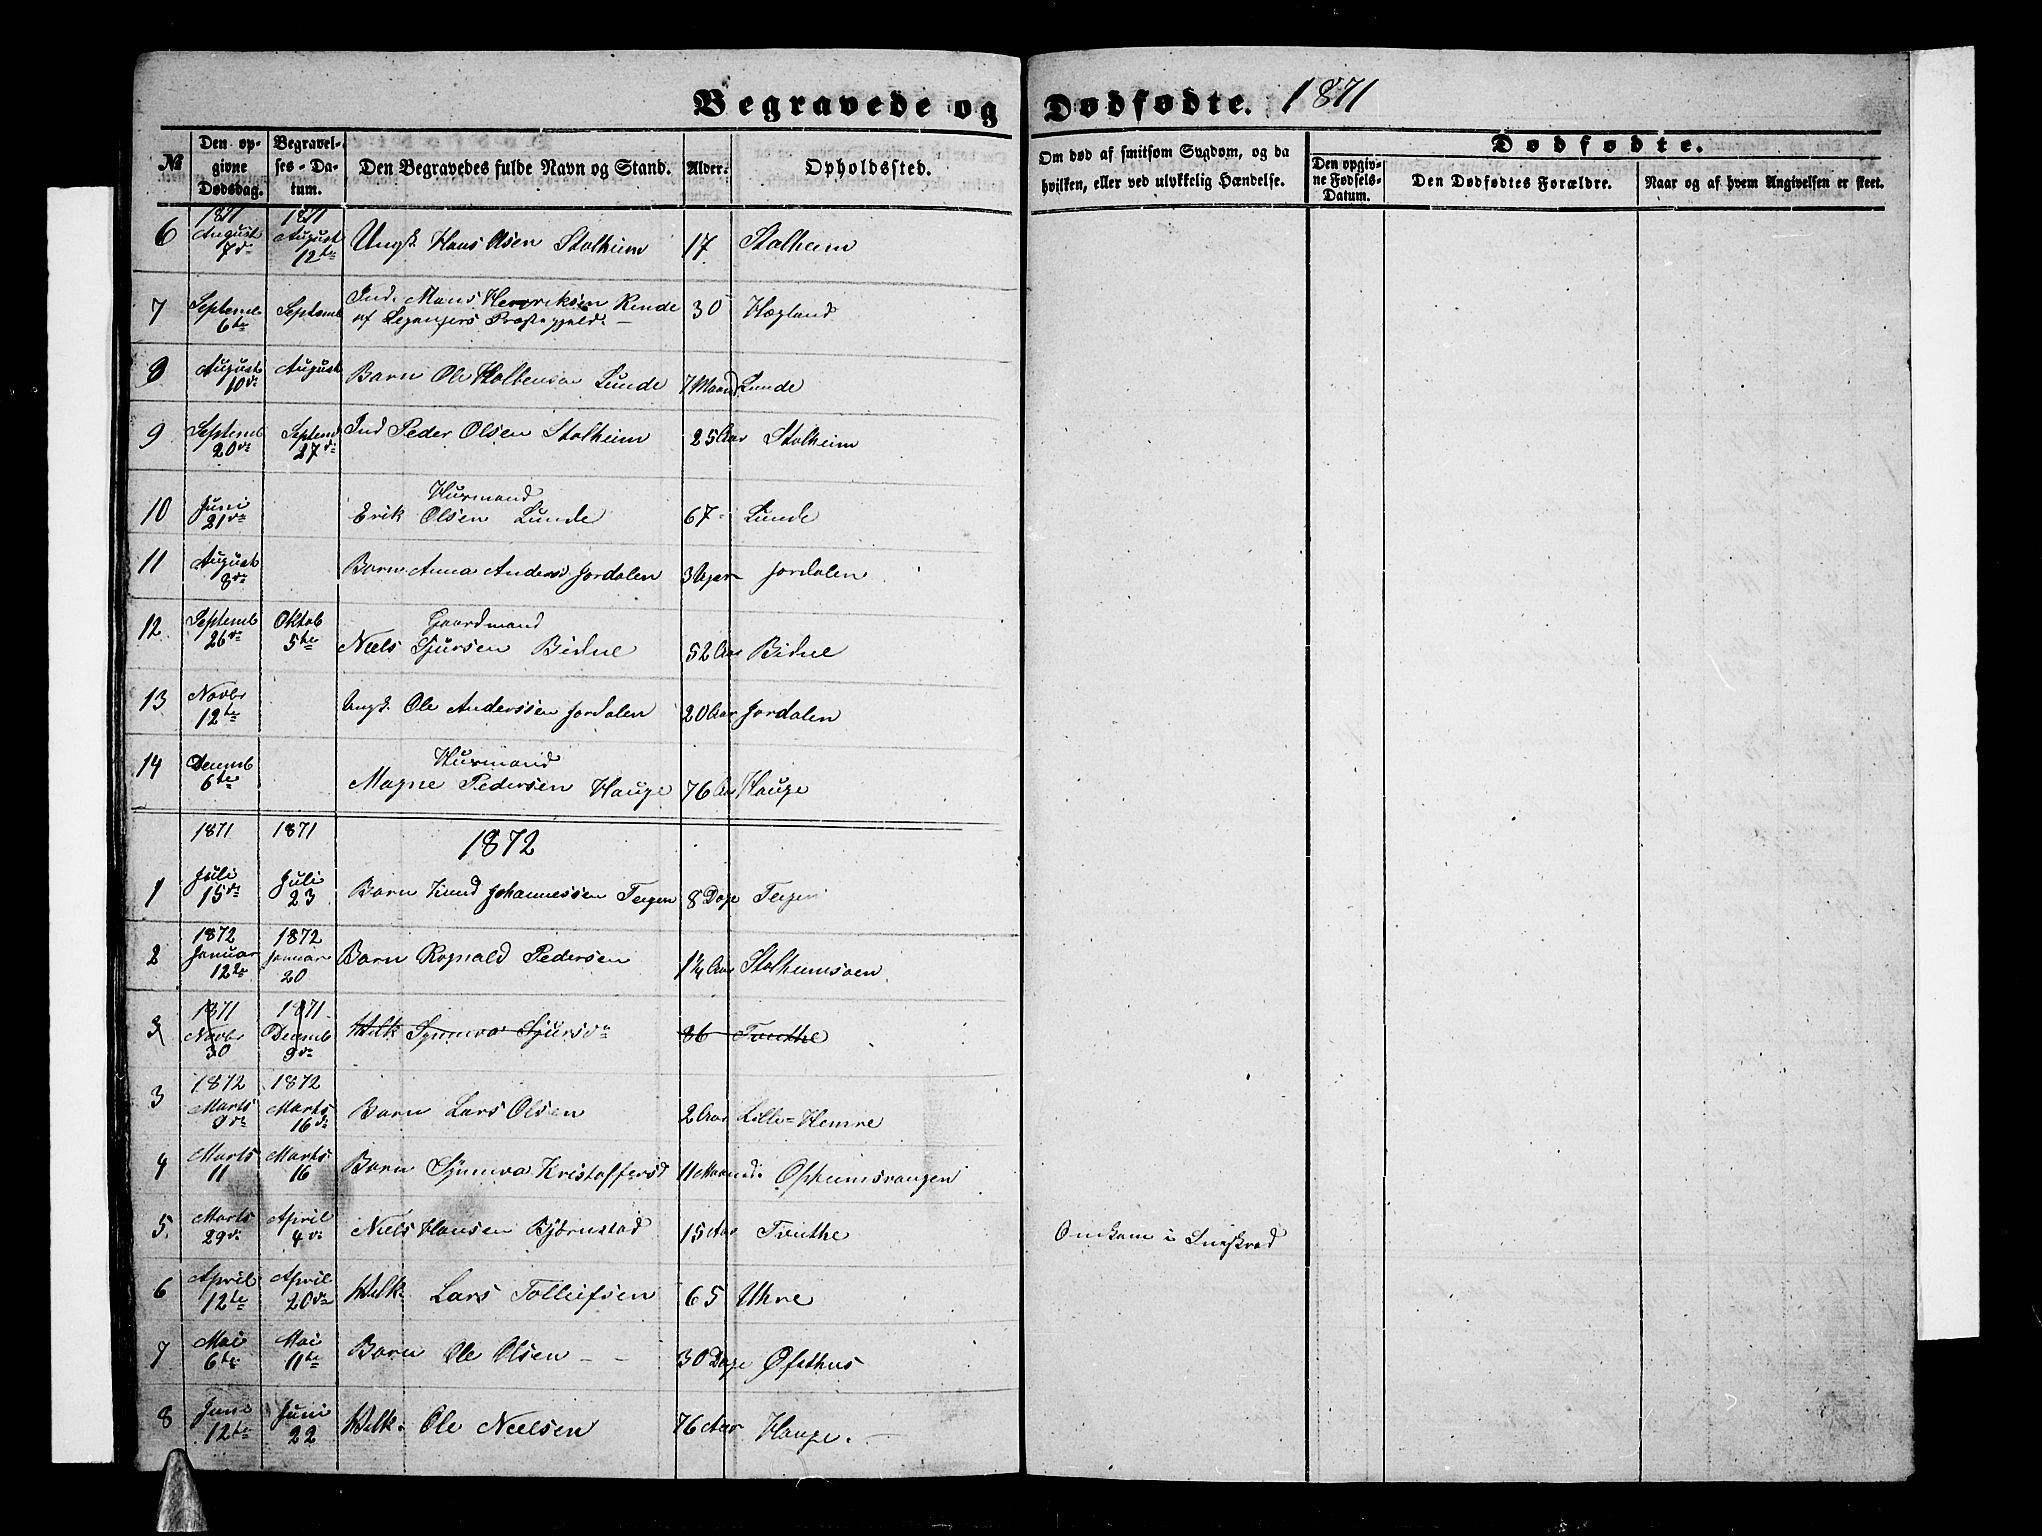 Begravede og Dødfødte. 1871
№ Den opgivne Dødsdag. Begravelses-Datum. Den Begravedes fulde Navn og Stand. Alder. Opholdssted. Om død af smitsom Sygdom, og da hvilken, eller ved ulykkelig Hændelse. Dødfødte. Den opgivne Fødsels-Datum. Den Dødfødtes Forældre. Naar og af hvem Angivelsen er skeet.
1871 1871
6 August 7de August 12te Ungk. Hans Olsen Stalheim 17 Stalheim
7 Septemb 6te Septemb Ind. Mons Henriksen Rinde af Leganger Præstegjeld. 30 Hægland
8 August 10de August Barn Ole Holbensen Lunde 7 Maand Lunde
9 Septemb 20de Septemb 27de Ind Peder Olsen Stalheim 25 Aar Stalheim
10 Juni 21de Husmand Erik Olsen Lunde 67 Lunde
11 August 8de Barn Anna Andersd Jordalen 3 Uger Jordalen
12. Septemb 26de Oktob 5te Gaardmand Niels Sjursen Bidne 52 Aar Bidne
13 Novbr 12te Ungk. Ole Anderssen Jordalen 20 Aar Jordalen
14 Decemb 6te Husmand Magne Pedersen Hauge 76 Aar Hauge
1871 1871 1872
1 Juli 15de Juli 23 Barn Knud Johannessen Teigen 8 Dage Teigen
1872 1872
2 Januar 12te Januar 20 Barn Rognald Pedersen 1¼ Aar Stalheimsøen
1871 1871
3 Novbr 30 Decemb 9de Kilk Synneva Sjursdr 86 Tvinthe
1872 1872
3 Marts 9de Marts 16de Barn Lars Olsen 2 Aar Lille-Hemre
4 Marts 11 Marts 16 Barn Synneva Kristoffersd 11 Maand. Opheimsvangen
5. Marts 29de April 4de Niels Hansen Bjørnstad 15 Aar Tvinthe Omkom i Sneskred
6 April 12te April 20de Kilk. Lars Tolleifsen 65 Uhre
7 Mai 6te Mai 11te Barn Ole Olsen - - 30 Dage Øfsthus
8 Juni 12te Juni 22 Kilk. Ole Nielsen 76 Aar Hauge. -